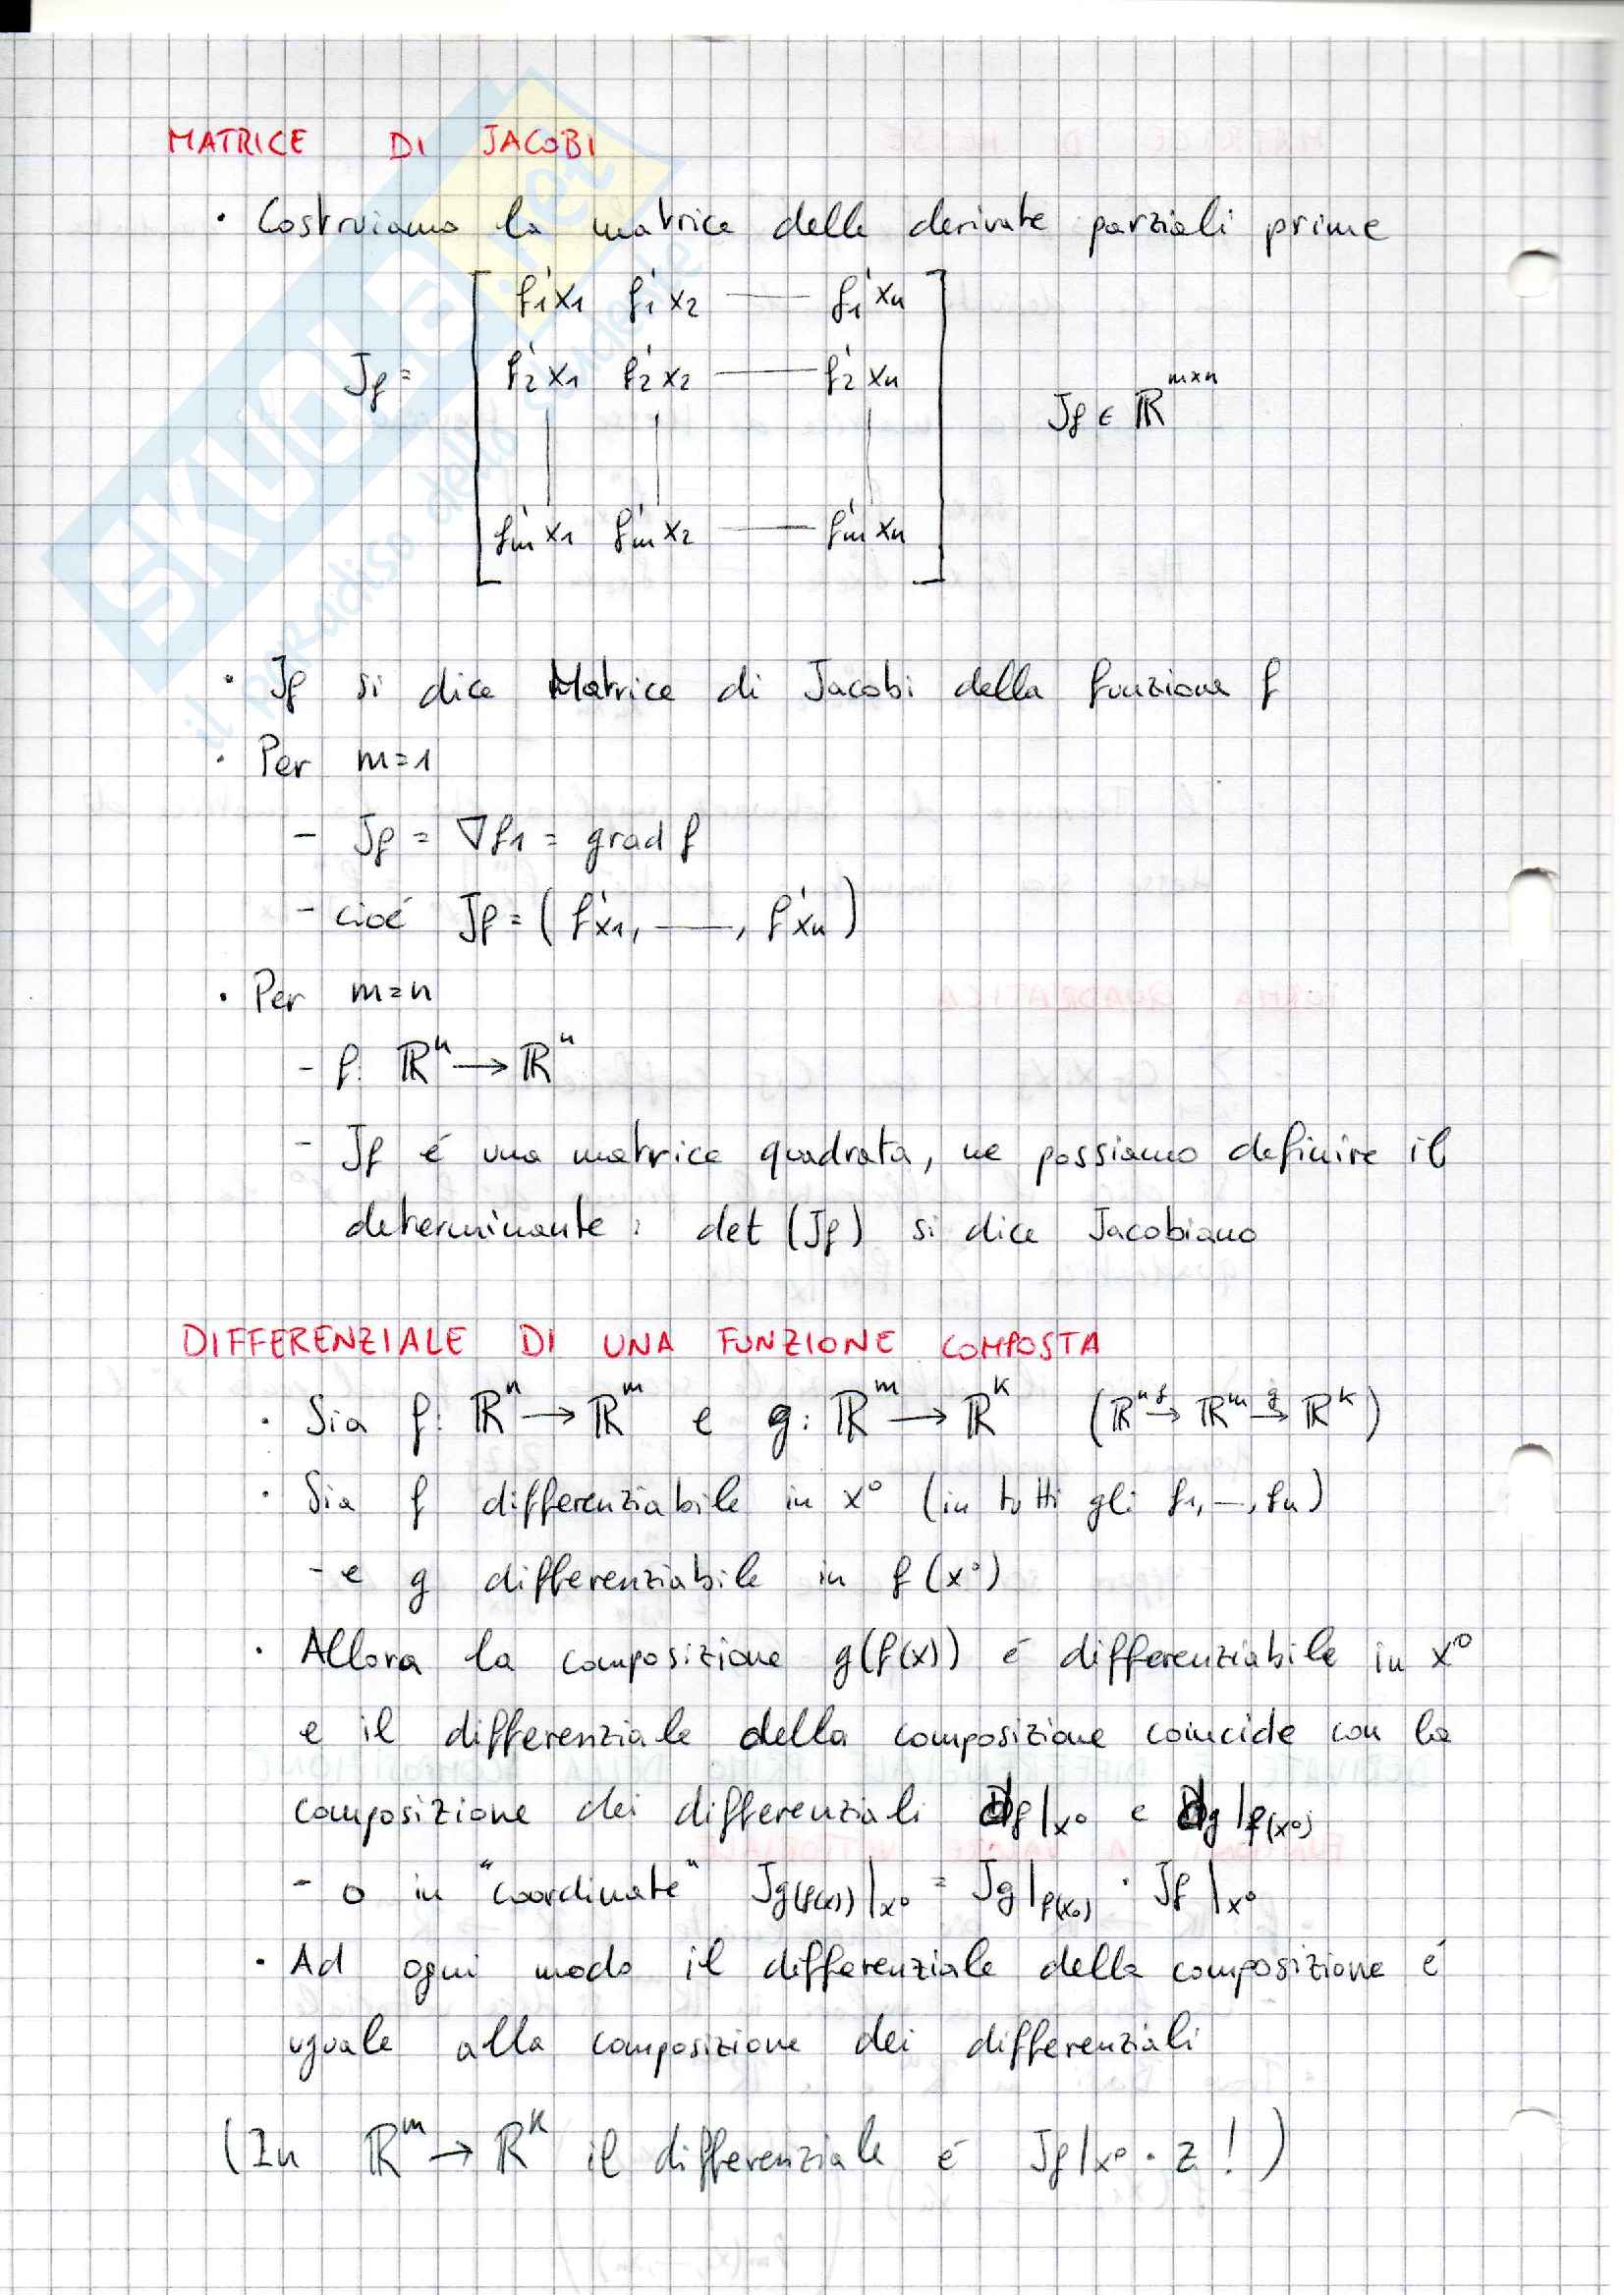 MATRICE DI JACOBI
· Costruiamo la matrice delle derivate parziali prime
Jf = [ f₁'x₁ f₁'x₂ —— f₁'xₙ
f₂'x₁ f₂'x₂ —— f₂'xₙ
| | |
fₘ'x₁ fₘ'x₂ —— fₘ'xₙ ]
Jf ∈ ℝᵐˣⁿ
· Jf si dice Matrice di Jacobi della funzione f
· Per m=1
- Jf = ∇f₁ = grad f
- cioé Jf = ( f'x₁, ——, f'xₙ )
· Per m=n
- f: ℝⁿ → ℝⁿ
- Jf é una matrice quadrata, ne possiamo definire il
determinante: det (Jf) si dice Jacobiano
DIFFERENZIALE DI UNA FUNZIONE COMPOSTA
· Sia f: ℝⁿ → ℝᵐ e g: ℝᵐ → ℝᵏ (ℝⁿ →f ℝᵐ →g ℝᵏ)
· Sia f differenziabile in x⁰ (in tutti gli f₁, —, fₙ)
- e g differenziabile in f(x⁰)
· Allora la composizione g(f(x)) é differenziabile in x⁰
e il differenziale della composizione coincide con la
composizione dei differenziali df|x⁰ e dg|f(x⁰)
- o in "coordinate" Jg(f(x))|x⁰ = Jg|f(x₀) · Jf|x⁰
· Ad ogni modo il differenziale della composizione é
uguale alla composizione dei differenziali
(In ℝᵐ → ℝᵏ il differenziale é Jf|x⁰ · z ! )
SKUOLA.net
il paradiso dello studente